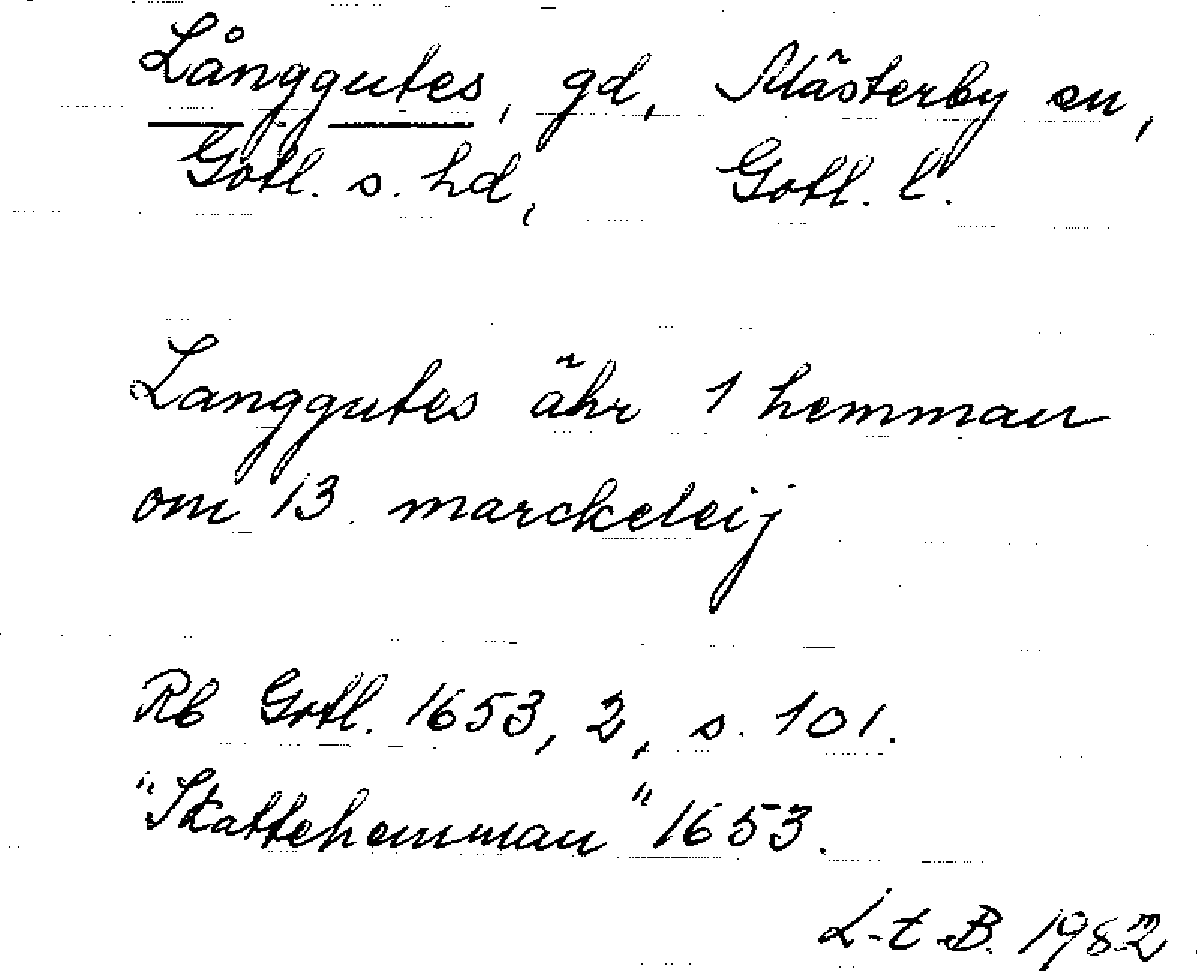 Långgutes, gd, Mästerby sn,
Gotl. s. hd, Gotl. l.
Langgutes ähr 1 hemman
om 13. marckeleij
Rb Gotl. 1653, 2, s. 101.
"Skattehemman" 1653.
L-t B. 1982